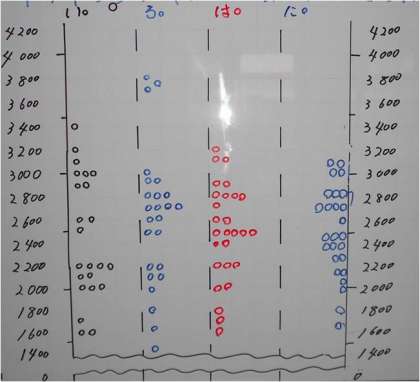 い。 ろ。 は。 に。
4200 4200
4000 4000
3800 3800
3600 3600
3400 3400
3200 3200
3000 3000
2800 2800
2600 2600
2400 2400
2200 2200
2000 2000
1800 1800
1600 1600
1400 1400
0 0